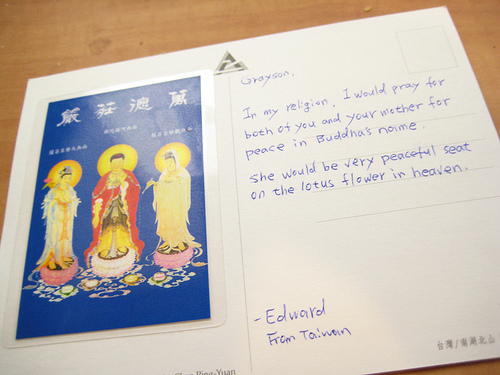 萬德莊嚴
Grayson,
In my religion, I would pray for
both of you and your mother for
peace in Buddha's name.
She would be very peaceful seat
on the lotus flower in heaven.
- Edward
From Taiwan
台灣/南湖北山
Ping-Yuan